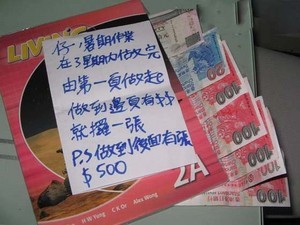 LIVING
仔,暑期作業
在3星期內做完
由第一頁做起
做到邊頁有
就攞一張
P.S做到後面有張
$500
2A
Alex Wong
20
100
100
100
100